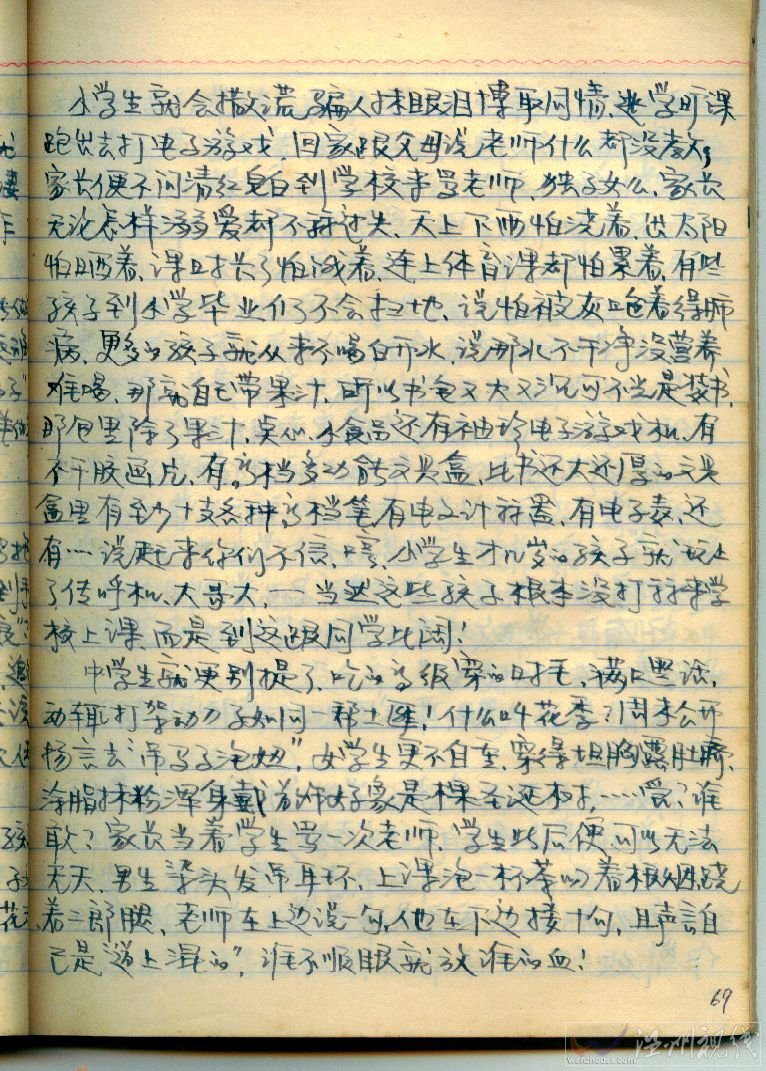 小学生就会撒谎骗人抹眼泪博取同情、逃学旷课
跑出去打电子游戏,回家跟父母说老师什么都没教,
家长便不问清红皂白到学校来骂老师。独子女么,家长
无论怎样溺爱都不算过失、天上下雨怕浇着、出太阳
怕晒着、课时长了怕饿着、连上体育课都怕累着、有些
孩子到小学毕业们了不会扫地、说怕被灰呛着得肺
病、更多的孩子就从来不喝白开水,说那水不干净没营养
难喝、那就自己带果汁,所以书包又大又沉可不光是装书,
那包里除了果汁、点心、小食品还有袖珍电子游戏机、有
不干胶画片,有高档多功能文具盒,比书还大还厚的文具
盒里有至少十支各种高档笔,有电子计算器,有电子表,还
有…说起来你们不信,嘿,小学生才几岁的孩子就玩上
了传呼机、大哥大,—当然这些孩子根本没打算来学
校上课,而是到这跟同学比阔!
中学生就更别提了、吃的高级穿的时毛,满口黑话,
动辄打架动刀子如同一帮土匪!什么叫花季?周末公开
扬言去“吊马子泡妞”,女学生更不自重,穿得坦胸露肚脐、
涂脂抹粉浑身戴首饰好象是棵圣诞树,……管?谁
敢?家长当着学生骂一次老师,学生此后便可以无法
无天,男生染头发吊耳环,上课泡一杯茶叼着根烟跷
着二郎腿,老师在上边说一句,他在下边接十句,且声言自
己是“道上混的”,谁不顺眼就放谁的血!
69
温州视线
wenzhousx.com